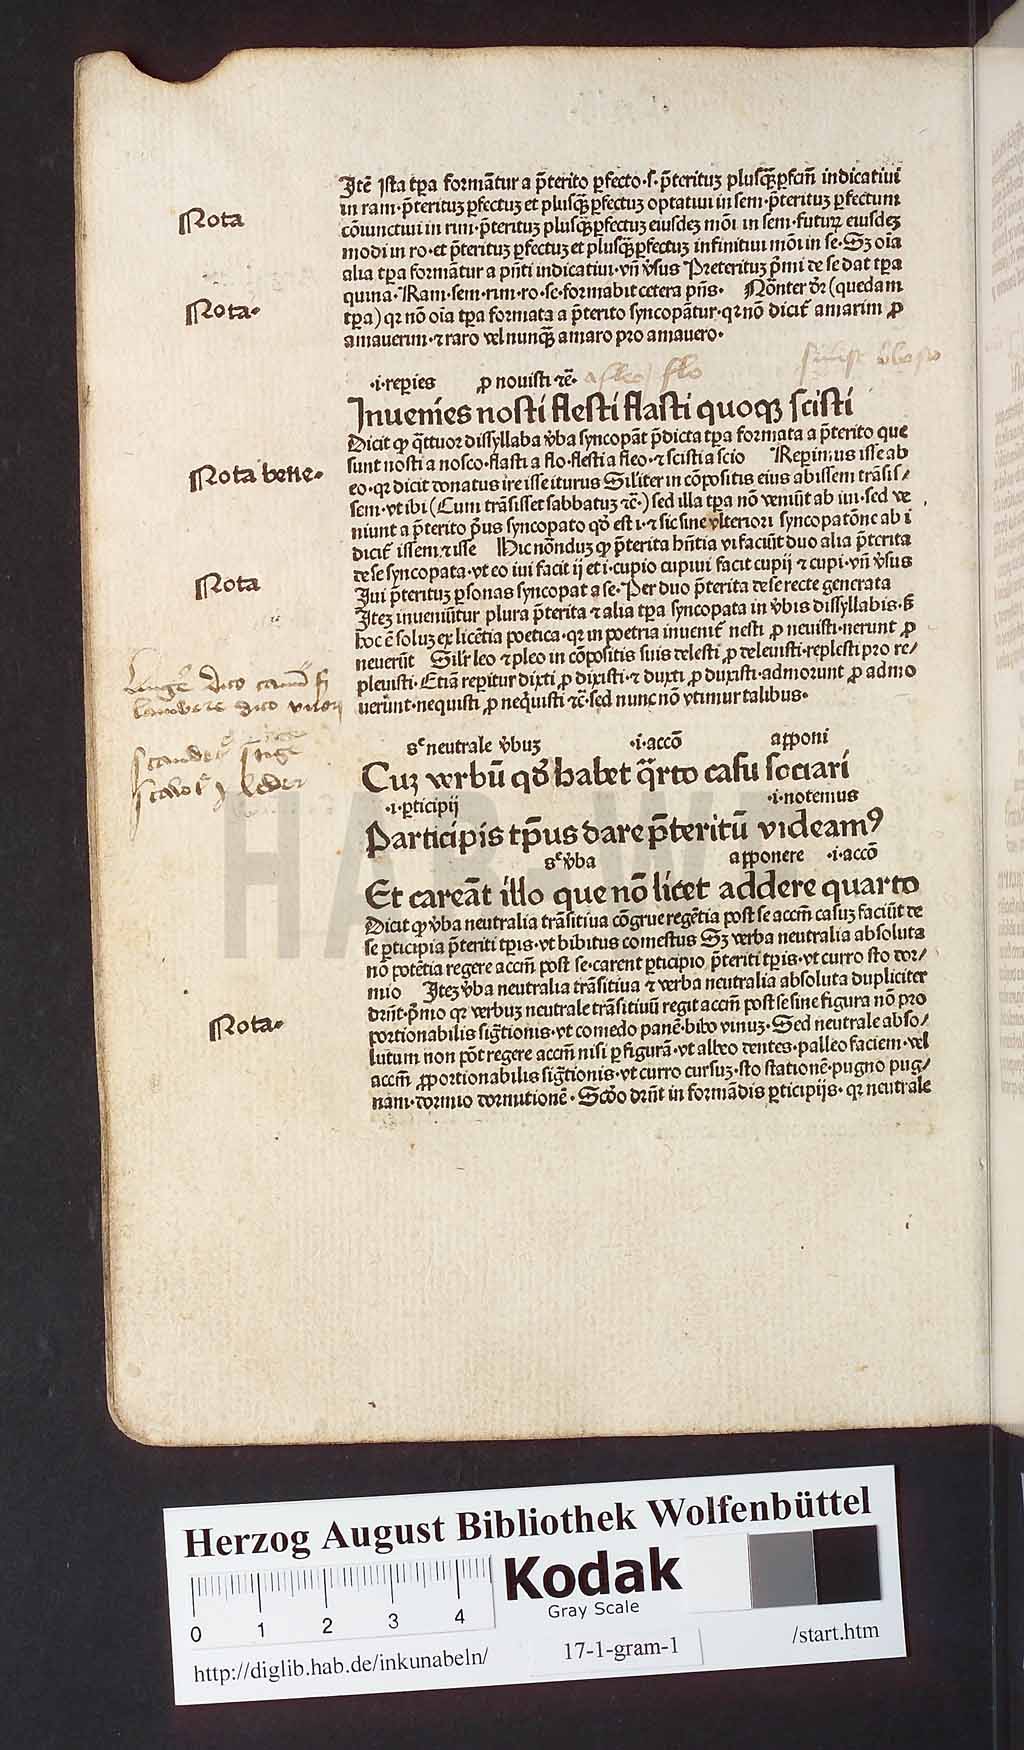 Itē ista tꝑa formātur a p̄terito ꝑfecto·s·p̄terituꝫ plusq̄ꝑfcm̄ indicatiui
in ram·p̄terituꝫ ꝑfectuꝫ et plusq̄ꝑfectuꝫ optatiui in sem·p̄terituꝫ ꝑfectum
Nota
cōiunctiui in rim·p̄terituꝫ plusq̄ꝑfectuꝫ eiusdeꝫ mōi in sem·futuꝝ eiusdeꝫ
modi in ro·et p̄terituꝫ ꝑfectuꝫ et plusq̄ꝑfectuꝫ infinitiui mōi in se·Sꝫ oīa
alia tꝑa formātur a pn̄ti indicatiui·vn̄ v̓sus Preterituꝫ p̄mi de se dat tꝑa
quina·Ram·sem·rim·ro·se·formabit cetera pn̄s· Nōnter dꝛ̄ (quedam
Nota·
tꝑa) qꝛ nō oīa tꝑa formata a p̄terito syncopātur·qꝛ nō dicit̄ amarim ꝓ
amauerim·⁊ raro vel nunq̄ꝫ amaro pro amauero·
·i·reꝑies ꝓ nouisti ⁊c̄· a fleo flo
Inuenies nosti flesti flasti quoqꝫ scisti
Dicit ꝙ q̄ttuor dissyllaba v̓ba syncopāt p̄dicta tꝑa formata a p̄terito que
sunt nosti a nosco·flasti a flo·flesti a fleo·⁊ scisti a scio Reperimus isse ab
Nota bene·
eo·qꝛ dicit donatus ire isse iturus Siliter in cōpositis eius abissem trāsis⸗
sem·vt ibi (Cum trāsisset sabbatuꝫ ⁊c̄·) sed illa tꝑa nō veniūt ab iui·sed ve
niunt a p̄terito p̄us syncopato qd̓ est i·⁊ sic sine vlteriori syncopatōne ab i
dicit̄ issem ⁊ isse Hic nōnduꝫ ꝙ p̄terita hn̄tia vi faciūt duo alia p̄terita
Nota
de se syncopata·vt eo iui facit ii et i·cupio cupiui facit cupij ⁊ cupi·vn̄ v̓sus
Iui p̄terituꝫ ꝑsonas syncopat a se·Per duo p̄terita de se recte generata
Iteꝫ inueniūtur plura p̄terita ⁊ alia tꝑa syncopata in v̓bis dissyllabis·s̄
hoc ē soluꝫ ex licētia poetica·qꝛ in poetria inuenit̄ nesti ꝓ neuisti·nerunt ꝓ
neuerūt Silr̄ leo ⁊ pleo in cōpositis suis delesti ꝓ deleuisti·replesti pro re⸗
pleuisti·Etiā reꝑitur dixti ꝓ dixisti·⁊ duxti ꝓ duxisti·admorunt ꝓ admo
uerūnt·nequisti ꝓ neq̓uisti ⁊c̄·sed nunc nō vtimur talibus·
sᶜ neutrale v̓buꝫ ·i·accō aꝑponi
Cuꝫ verbū qd̓ habet q̄rto casu sociari
·i·ꝑticipij ·i·notemus
Participis tꝑus dare p̄teritū videamꝰ
sᶜ v̓ba apponere ·i·accō
Et careāt illo que nō licet addere quarto
Dicit ꝙ v̓ba neutralia trāsitiua cōgrue regētia post se accm̄ casuꝫ faciūt de
se ꝑticipia p̄teriti tꝑis·vt bibitus comestus Sꝫ verba neutralia absoluta
nō potētia regere accm̄ post se·carent ꝑticipio p̄teriti tꝑis·vt curro sto dor⸗
mio Iteꝫ v̓ba neutralia trāsitiua ⁊ verba neutralia absoluta dupliciter
Nota·
drn̄t·p̄mo qꝛ verbuꝫ neutrale trāsitiuū regit accm̄ post se sine figura nō pro
portionabilis sig̓tionis·vt comedo panē·bibo vinuꝫ·Sed neutrale abso⸗
lutum non pōt regere accm̄ nisi ꝑ figurā·vt albeo dentes·palleo faciem·vel
accm̄ ꝓportionabilis sig̓tionis·vt curro cursuꝫ·sto stationē·pugno pug⸗
nam·dormio dormitionē·Scd̓o drn̄t in formādis ꝑticipijs·qꝛ neutrale
HAB-W
Herzog August Bibliothek Wolfenbüttel
Kodak
Gray Scale
0 1 2 3 4
http://diglib.hab.de/inkunabeln/
17-1-gram-1
/start.htm